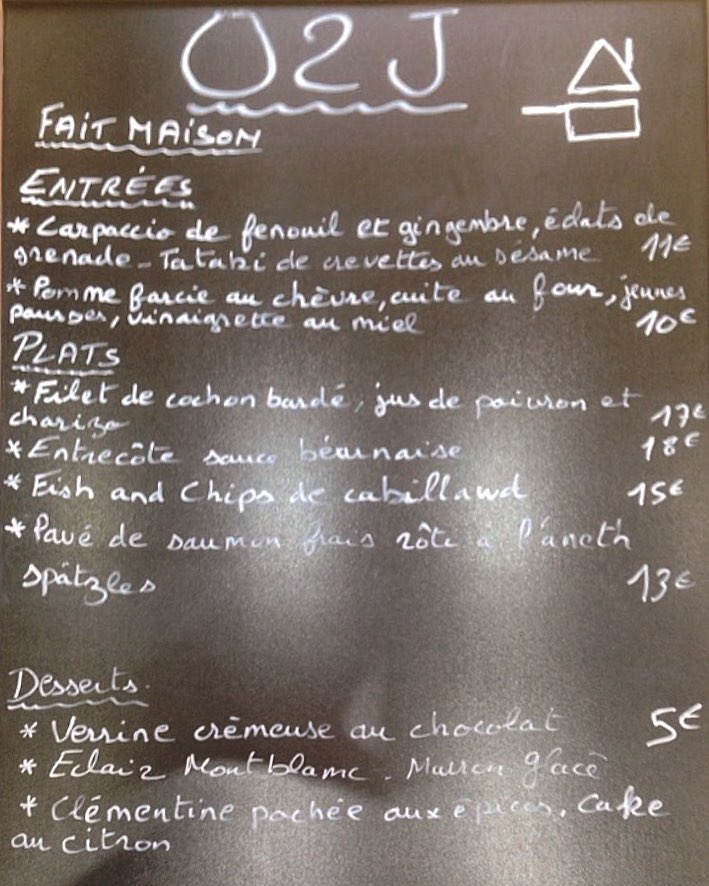 O2J
FAIT MAISON
ENTRÉES
* Carpaccio de fenouil et gingembre, éclats de
grenade - Tataki de crevettes au sésame 11€
* Pomme farcie au chèvre, cuite au four, jeunes
pousses, vinaigrette au miel 10€
PLATS
* Filet de cochon bardé, jus de poivron et
chorizo 17€
* Entrecôte sauce béarnaise 18€
* Fish and Chips de cabillaud 15€
* Pavé de saumon frais rôti à l'aneth
spätzles 13€
Desserts.
* Verrine crèmeuse au chocolat 5€
* Eclair Montblanc. Marron glacé
* Clémentine pochée aux épices. Cake
au citron